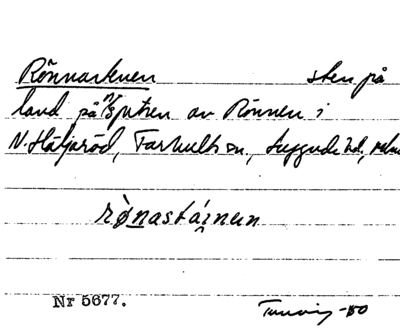 Rönnastenen sten på
land på N spetsen av Rönnen i
N. Häljaröd, Farhults sn, Luggude hd,
rø̀nastáinen
Nr 5677.
-50